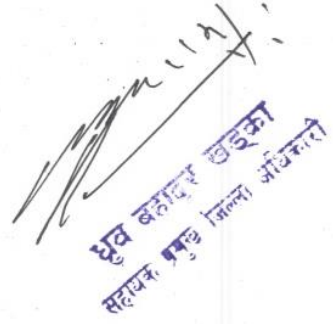 ध्रुव बहादुर खड्का
सहायक प्रमुख जिल्ला अधिकारी